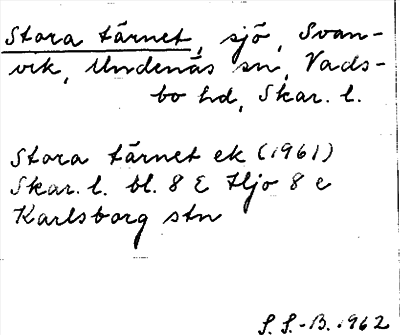 Stora tärnet, sjö, Svan-
vik, Undenäs sn, Vads-
bo hd, Skar. l.
Stora tärnet ek (1961)
Skar. l. bl. 8 E Hjo 8 e
Karlsborg stn
S. S.-B. 1962